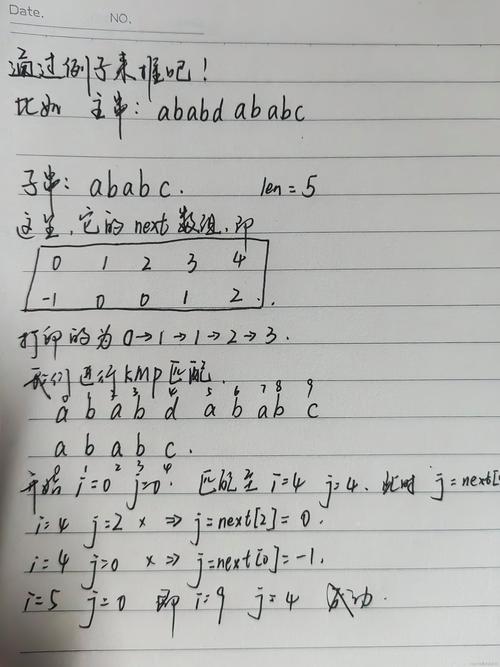 Date.
NO.
通过例子来推吧！
比如 主串: ababdababc
子串: ababc. len=5
这里, 它的next数组, 即
0 1 2 3 4
-1 0 0 1 2
打印的为 0→1→1→2→3.
我们进行KMP匹配.
0 1 2 3 4 5 6 7 8 9
a b a b d a b a b c
a b a b c.
0 1 2 3 4
开始 i=0 j=0. 匹配至 i=4 j=4. 此时 j=next[
i=4 j=2 × ⇒ j=next[2]=0.
i=4 j=0 × ⇒ j=next[0]=-1.
i=5 j=0 即 i=9 j=4 成功.